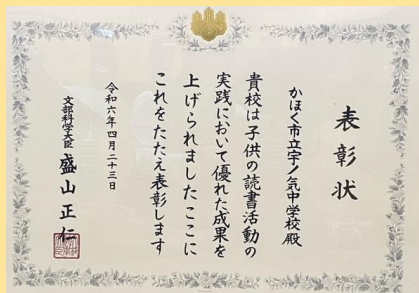 表彰状
かほく市立宇ノ気中学校殿
貴校は子供の読書活動の
実践において優れた成果を
上げられましたここに
これをたたえ表彰します
令和六年四月二十三日
文部科学大臣 盛山正仁